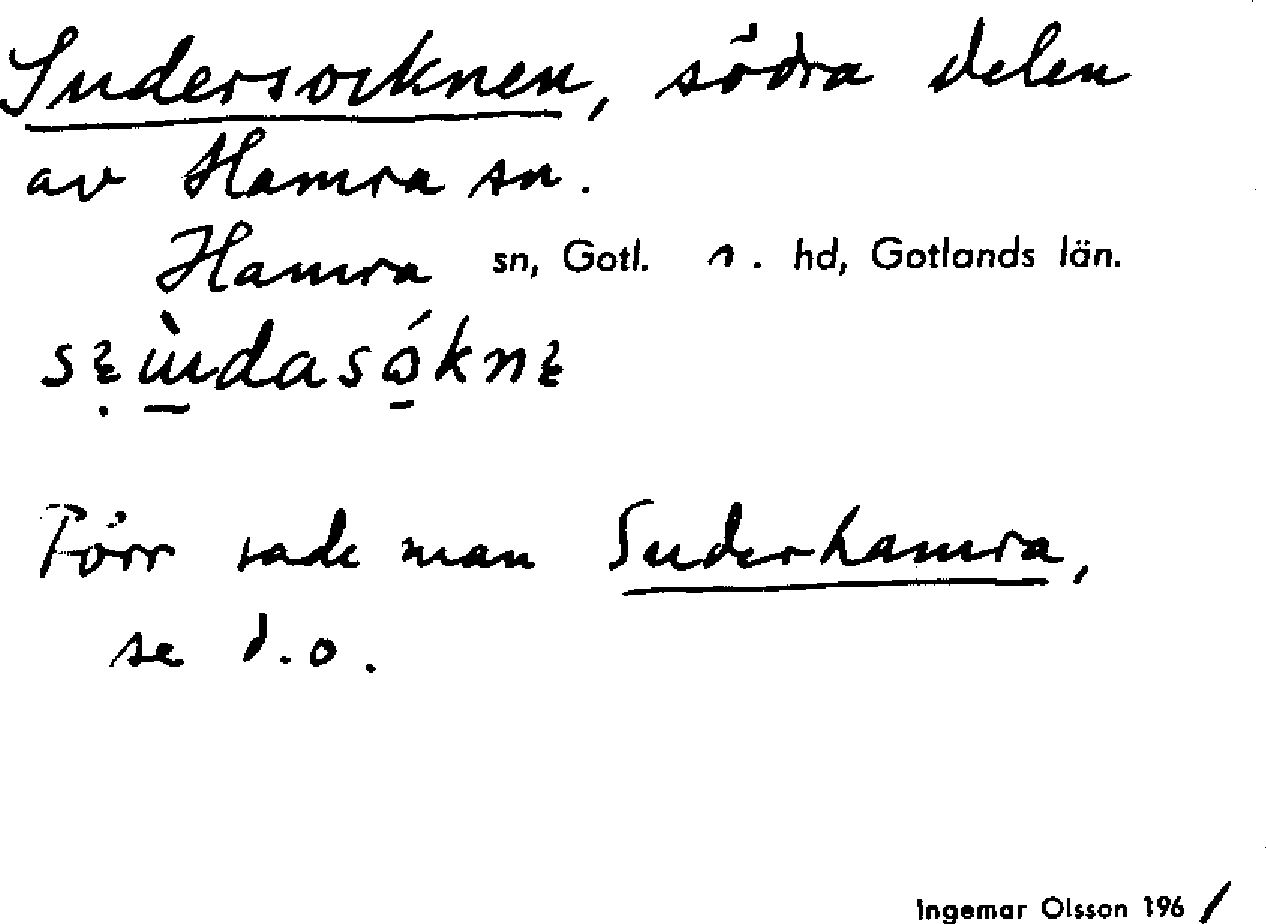 Sudersocknen, södra delen
av Hamra sn.
Hamra sn, Gotl. s. hd, Gotlands län.
Förr sade man Suderhamra,
se d.o.
Ingemar Olsson 1961